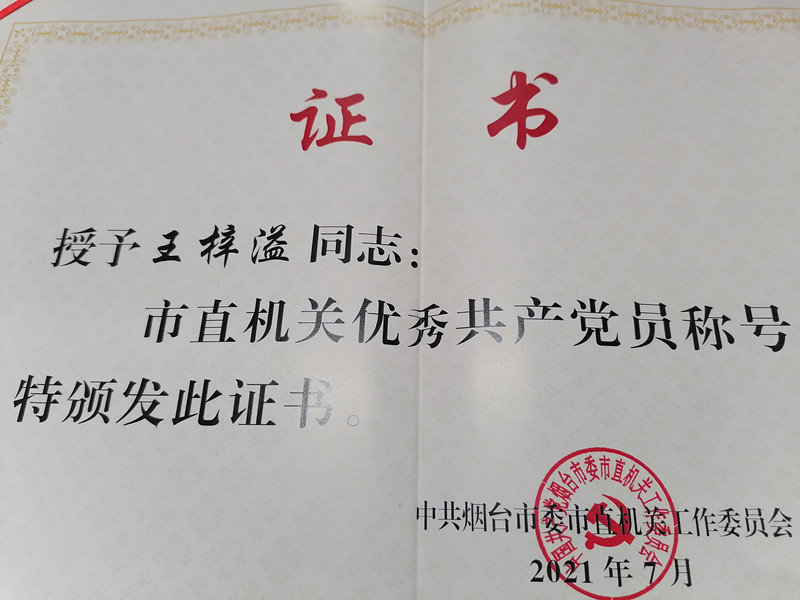 证书
授予王梓溢同志：
市直机关优秀共产党员称号
特颁发此证书。
中共烟台市委市直机关工作委员会
2021年7月
中国共产党烟台市委市直机关工作委员会